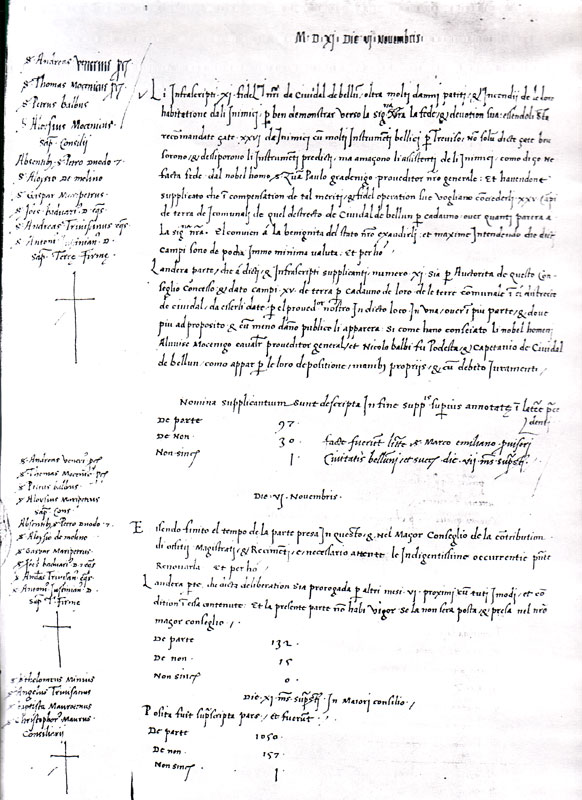 M.D.XI. Die VI. Novembris.
s. Andreas Venerius pc̄s
s. Thomas Mocenicus pc̄s
s. Petrus ballous
s. Aloysius Mocenicus
sap. Consilii
Absentib. s. Petro Duodo
s. Aloysio de molino
s. Gaspar Maripetrus
s. Andreas Trivisanus eqs
s. Antoni
sap. Terre Firme
Li Infrascripti XI. fidel. nr̄i da Cividal de bellun, oltra molti danni patiti, & Incendii de le loro
habitatione dali Inimici, p̱ ben demonstrar verso la sig. nr̄a la fede, & devotion sua: essendoli sta
recomandate cate XXVI da Inimici cu molti Instrumēti bellici p̱ Treviso, No solu dicte cate bru
sorono, & desiporono li Instrumēti predicti, ma amaçono li assistenti de li Inimici, como di ço ne
facta fede dal nobel homo s. Zua Paulo gradenigo proveditor nr̄o general: Et havendone
supplicato che i compensation de tal meriti, & fidel operation lue Vogliano concederli XXV Capi
de terra de i comunali de quel destrecto de Cividal de bellun p̱ cadauno, over quanti parera a
la sig. nr̄a. El convien a la benignita del stato nr̄o exaudirli, et maxime Intendendo che dicti
Campi sono de pocha Immo minima valuta. Et perho
Landera parte, che a dicti, & Infrascripti supplicanti, numero XI. sia p̱ Auctorita de questo Con
seglio Concesso, & dato campi XV. de terra p̱ cadauno de loro de le terre comunale i el destrecto
de cividal, da esserli date p̱ el proved. nostro In dicto loco In una, over i piu parte, & dove
piu ad proposito, & cu meno dano publico li apparera. Si come hano consciato li nobel homeni
Alvvise Mocenigo cavalr̄ proveditor general, et Nicolo balbi fu Podesta, & Capetanio de Cividal
de bellun, como appar p̱ le loro depositione, manibi proprijs, & cu debito Iuramenti
Nomina supplicantium sunt descripta In fine supp. superius annotate i latere prece
dent.
De parte 97.
De Non. 30. facte fuerunt littere s. Marco emiliano provisori
Non sincˢ 1. Civitatis belluni, et succes. die. VII. mˢ supsti.
s. Andreas Venerˢ pc̄s
s. Thomas Mocenicˢ pc̄s
s. Petrus ballous
s. Aloysius Maripetrus
sap. Cons.
Absentib. s. Petro Duodo
s. Aloysio de molino
s. Gaspar Maripetrus
s. Andreas Trivisan. eqs
sap. T. Firme
Die VI. Novembris.
Eisendo finito el tempo de la parte presa In questo, & nel Mazor Conseglio de la contribution
di offitii Magistrati, & Recimeti, e necessario attente le Indigentissime occurrentie pn̄te
Renovarla. et per ho
Landera pte, che dicta deliberation sia prorogada p̱ altri mesi. VI. proximi cu tuti Imodi, et co
dition i essa contenute. Et la presente parte no habi Vigor se la non sera posta, & presa nel nr̄o
mazor conseglio.
De parte 132.
De non. 15
Non sincˢ 0.
s. Bartholomeus Minius
s. Angelus Trivisanus
s. Baptista Maurocenus
s. Christophor. Maurus
Consiliarii
Die. XI. mˢ supsti. In Maiori consilio.
Posita fuit suprascripta pars, et fuerūt
De parte 1050.
De non. 157.
Non sincˢ 1